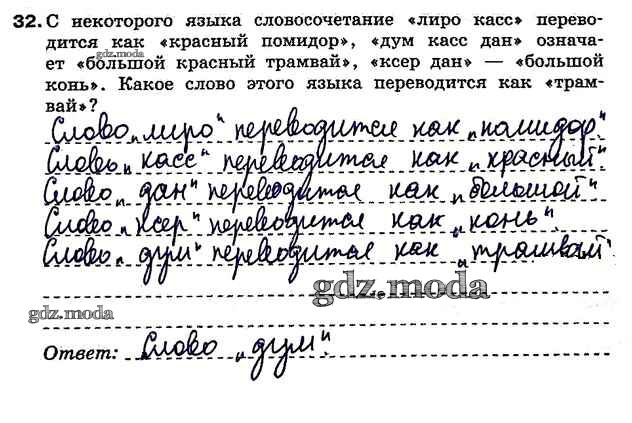 32. С некоторого языка словосочетание «лиро касс» перево-
дится как «красный помидор», «дум касс дан» означа-
gdz.moda
ет «большой красный трамвай», «ксер дан» — «большой
конь». Какое слово этого языка переводится как «трам-
вай»?
Слово „лиро" переводится как „помидор".
Слово „касс" переводится как „красный".
Слово „дан" переводится как „большой"
Слово „ксер" переводится как „конь".
Слово „дум" переводится как „трамвай"
gdz.moda
gdz.moda
Ответ: Слово „дум".